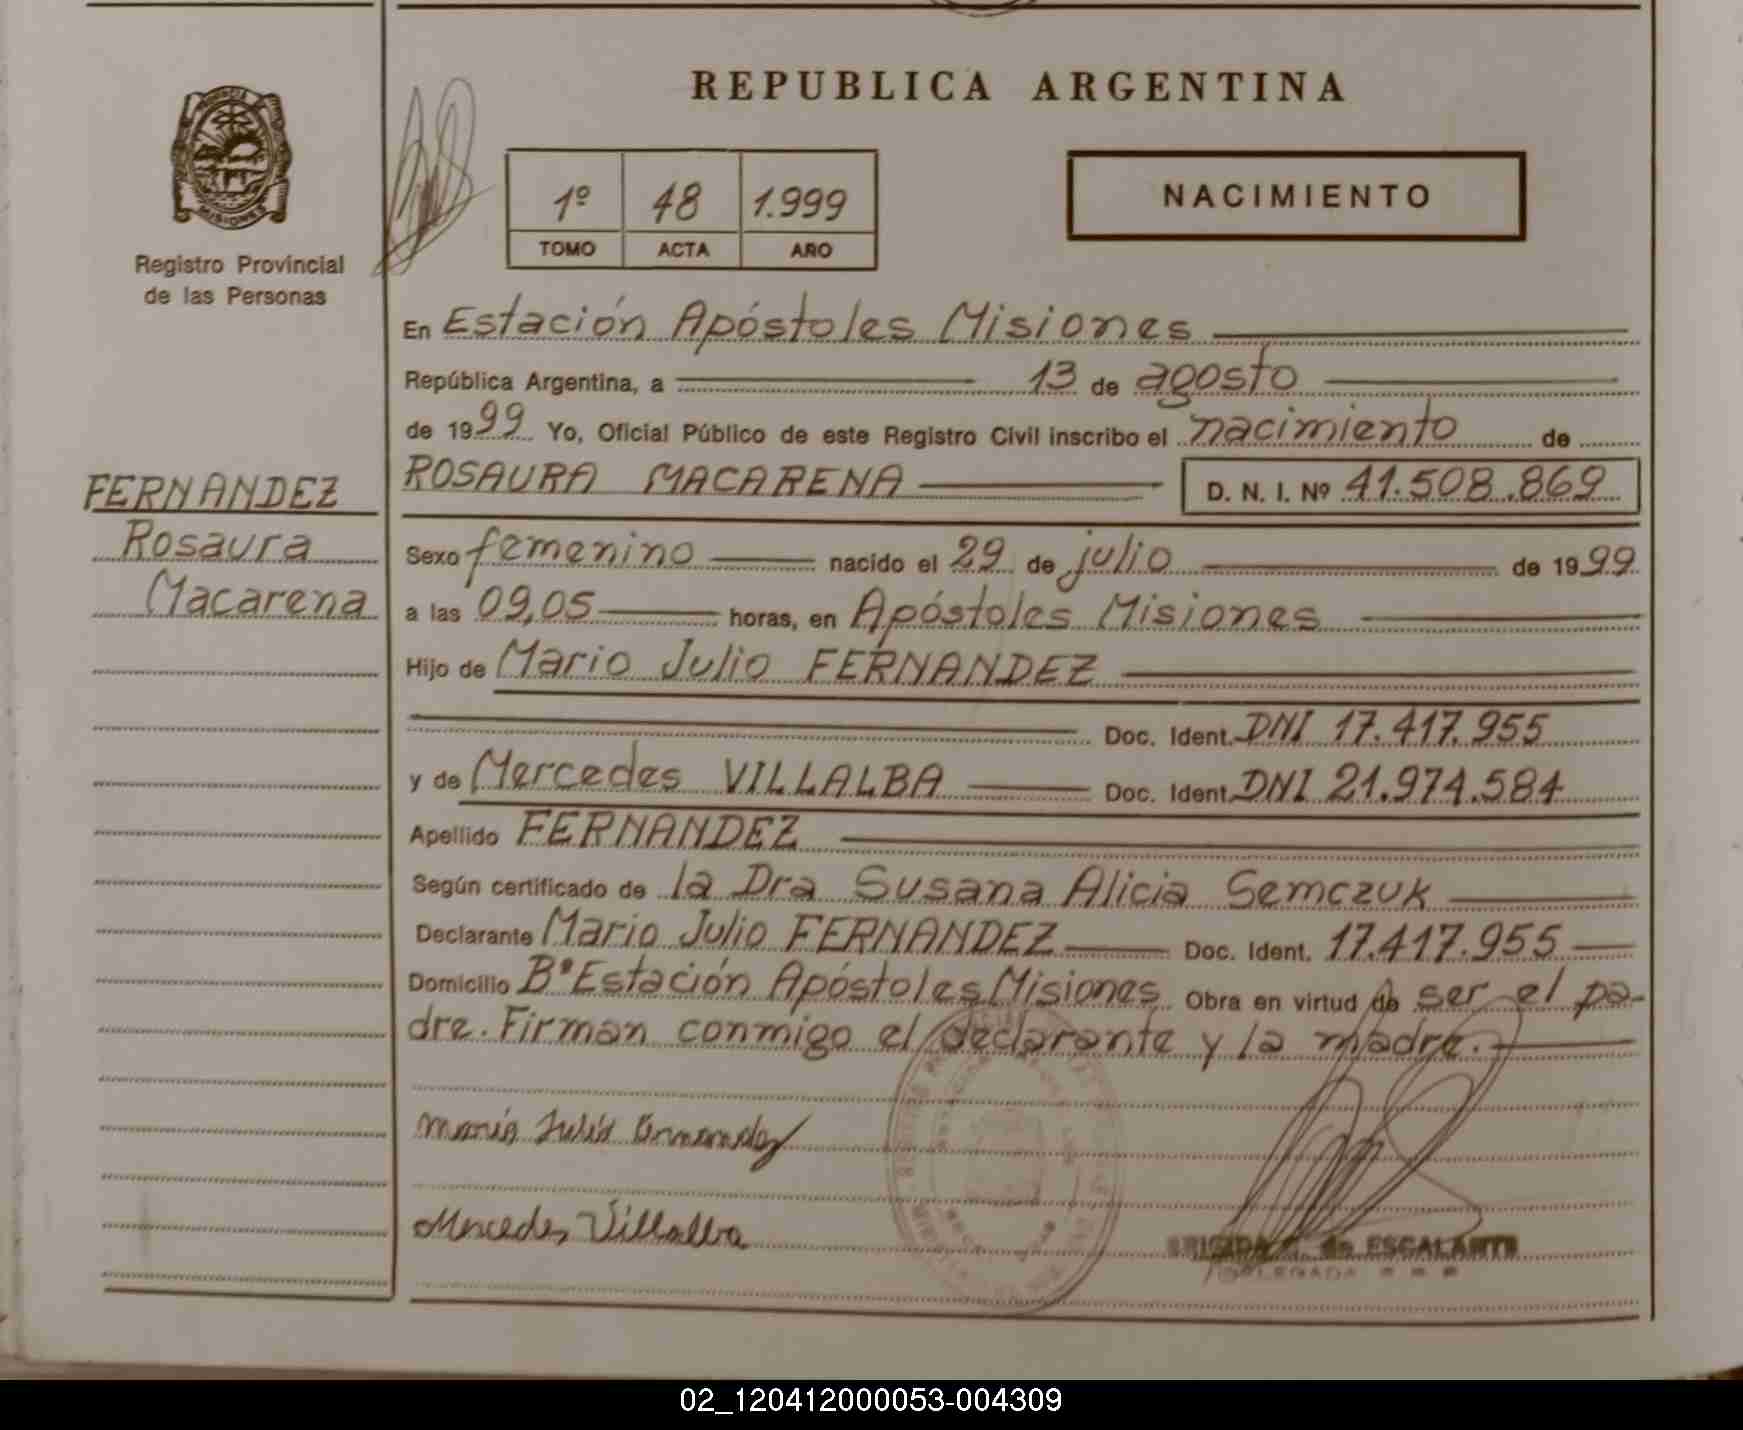 REPUBLICA ARGENTINA
PROVINCIA DE
MISIONES
Registro Provincial
de las Personas
1º 48 1.999
TOMO ACTA AÑO
NACIMIENTO
En Estación Apóstoles Misiones
República Argentina, a 13 de agosto
de 1999 Yo, Oficial Público de este Registro Civil inscribo el nacimiento de
ROSAURA MACARENA D. N. I. Nº 41.508.869
FERNANDEZ
Rosaura
Macarena
Sexo femenino nacido el 29 de julio de 1999
a las 09,05 horas, en Apóstoles Misiones
Hijo de Mario Julio FERNANDEZ
Doc. Ident. DNI 17.417.955
y de Mercedes VILLALBA Doc. Ident. DNI 21.974.584
Apellido FERNANDEZ
Según certificado de la Dra Susana Alicia Semczuk
Declarante Mario Julio FERNANDEZ Doc. Ident. 17.417.955
Domicilio Bº Estación Apóstoles Misiones Obra en virtud de ser el pa-
dre. Firman conmigo el declarante y la madre.
Mario Julio Fernandez
Mercedes Villalba
BRIGIDA de ESCALANTE
DELEGADA
02_120412000053-004309